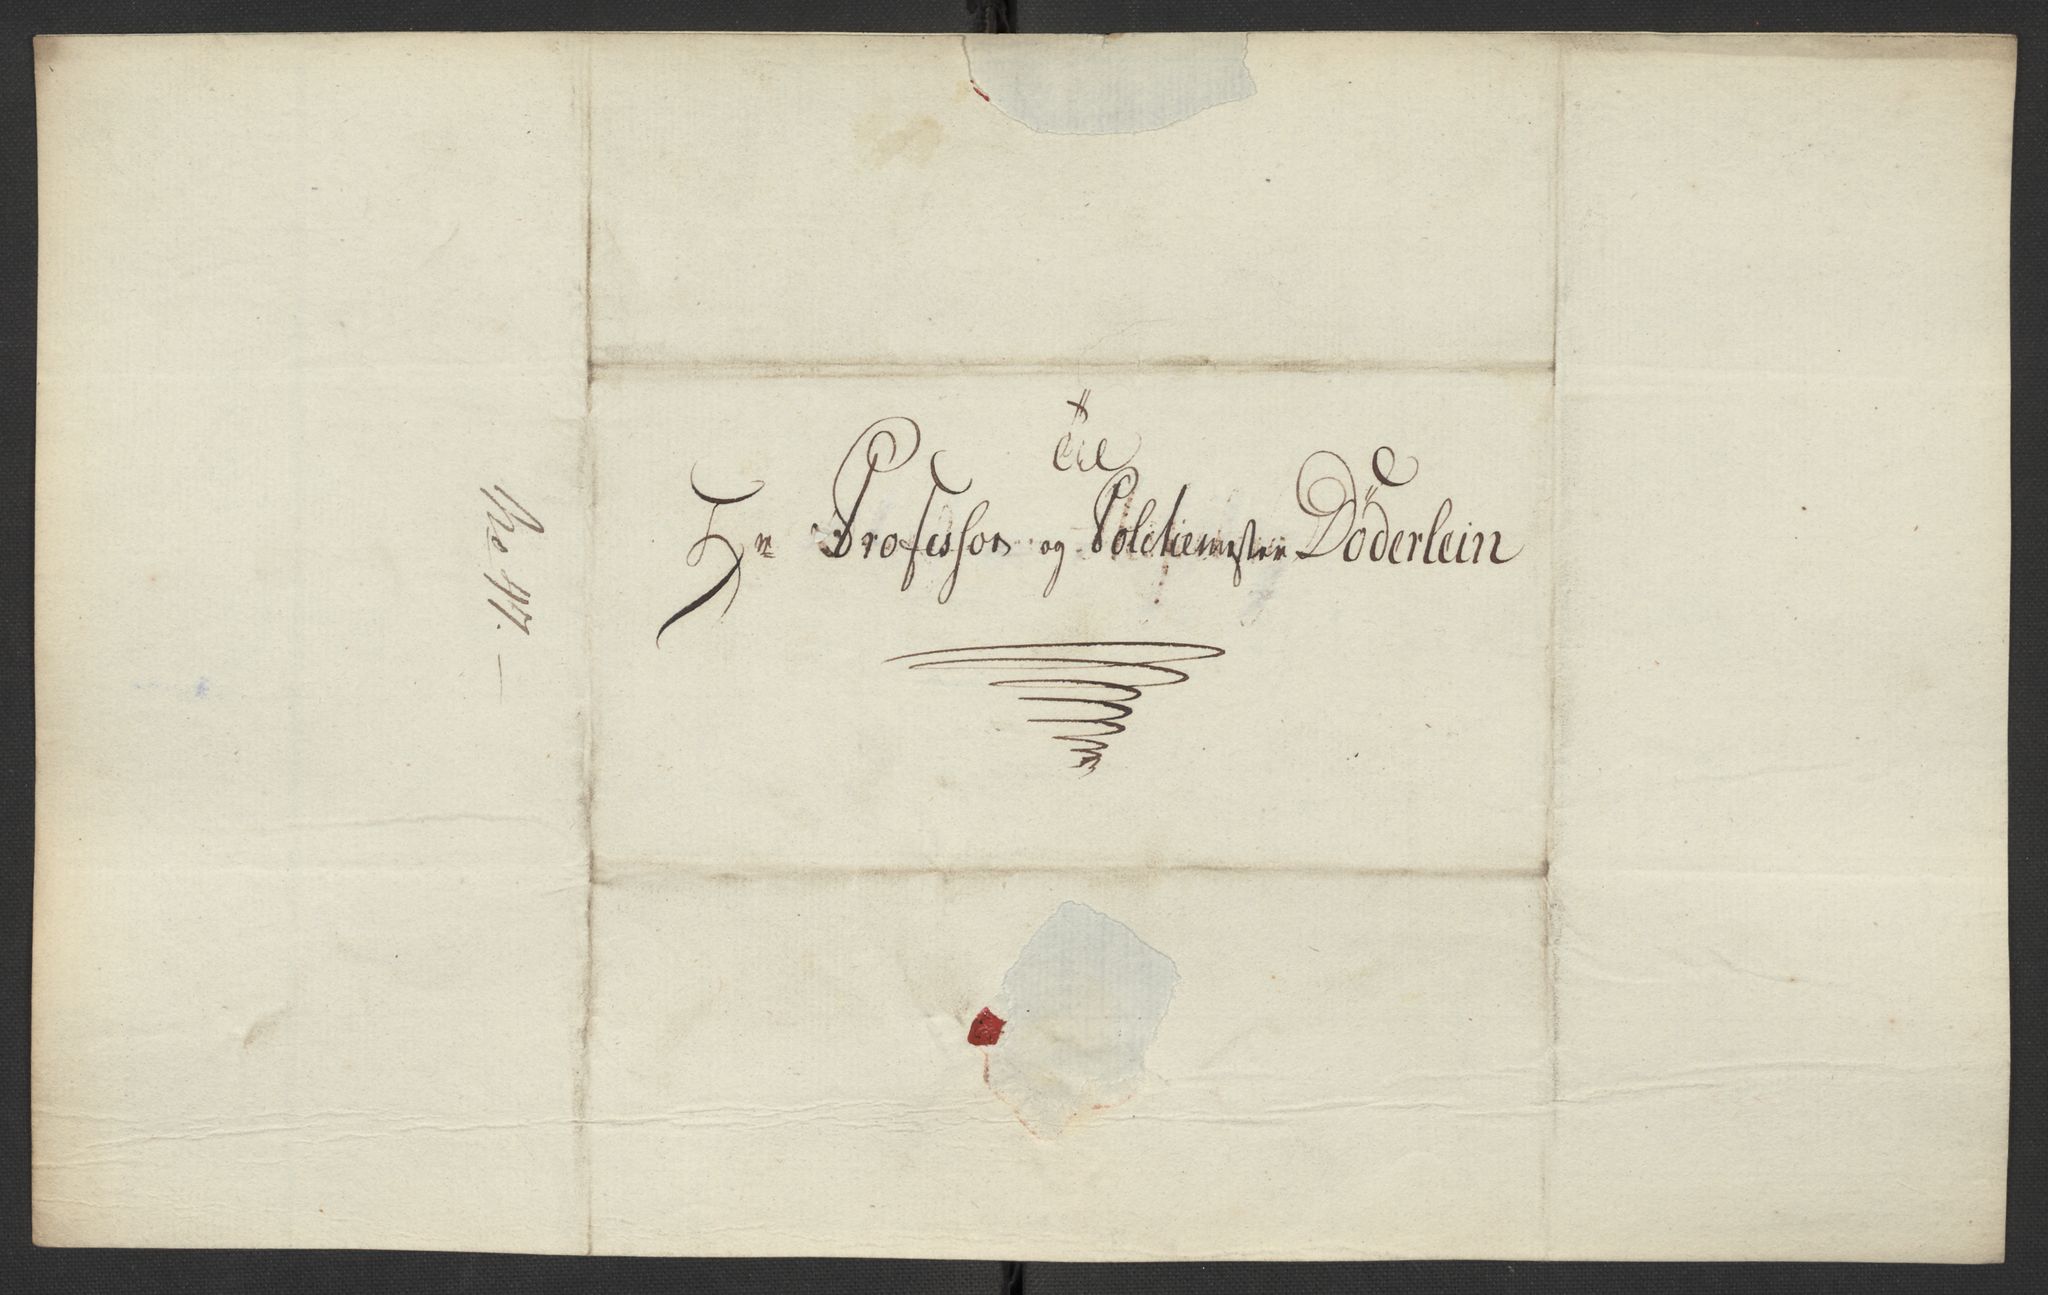 Til
Hr Professor og Politiemester Döderlein
No 47.